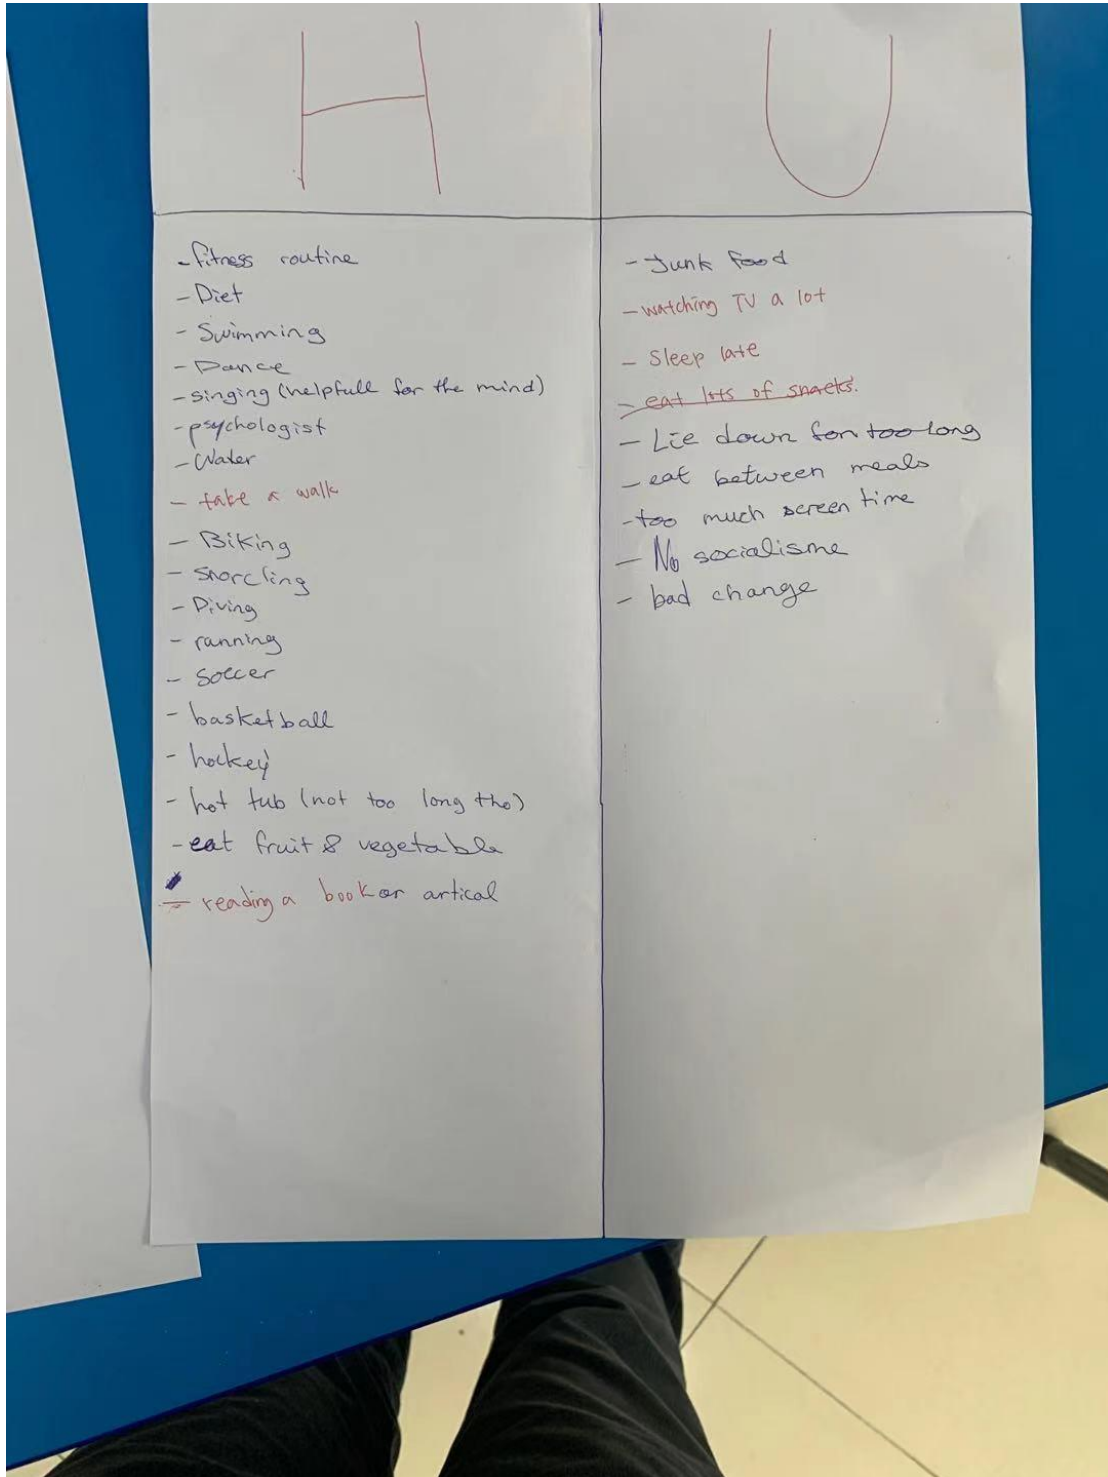 H
- fitness routine
- Diet
- Swimming
- Dance
- singing (helpfull for the mind)
- psychologist
- Water
- take a walk
- Biking
- snorcling
- Diving
- ranning
- soccer
- basketball
- hockey
- hot tub (not too long tho)
- eat fruit & vegetable
- reading a book or artical
U
- Junk food
- watching TV a lot
- Sleep late
- eat lots of snacks.
- Lie down for too long
- eat between meals
- too much screen time
- No socialisme
- bad change